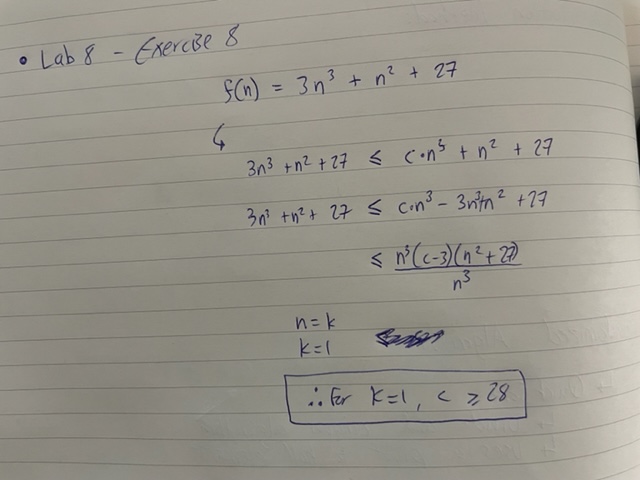 • Lab 8 - Exercise 8
f(n) = 3n³ + n² + 27
3n³ + n² + 27 ≤ c·n³ + n² + 27
3n³ + n² + 27 ≤ c·n³ - 3n³+n² + 27
≤ n³(c-3)(n²+27)
n³
n = k
k = 1
∴ For k=1, c ≥ 28